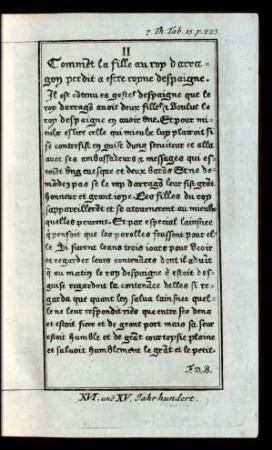 7. Th. Tab. 15. p. 223.
II
Commēt la fille au roy d'arra-
gon perdit a estre royne despaigne.
Il est cōtenu es gestes despaigne que le
roy darragō avoit deux filles & voulut le
roy despaigne en avoir une. Et pour mi-
eulx eslire celle qui mieulx luy plairoit si
se contrefist en guise dung serviteur et alla
avec ses embassadeurs & messages qui es-
toiēt ung evesque et deux barōs Et ne de-
mādez pas se le roy darragō leur fist grāt
honneur et grant joye. Les filles du roy
sappareillerēt et se atournerent au mieulx
quelles peurent. Et par especial lainsnee
q̄ pensoit que les parolles feussent pour el-
le Si furent leans trois jours pour veoir
et regarder leurs contenāces dont il advīt
q̄ au matin le roy despaigne q̄ estoit des-
guise regardoit la contenāce delles si re-
garda que quant len salua lainsnee quel-
le ne leur respondit riēs que entre ses dens
et estoit fiere et de grant port mais sa seur
estoit humble et de grāt courtoysie plaine
et saluoit humblement le grāt et le petit.
F. D. B.
XVI. und XV. Jahrhundert.